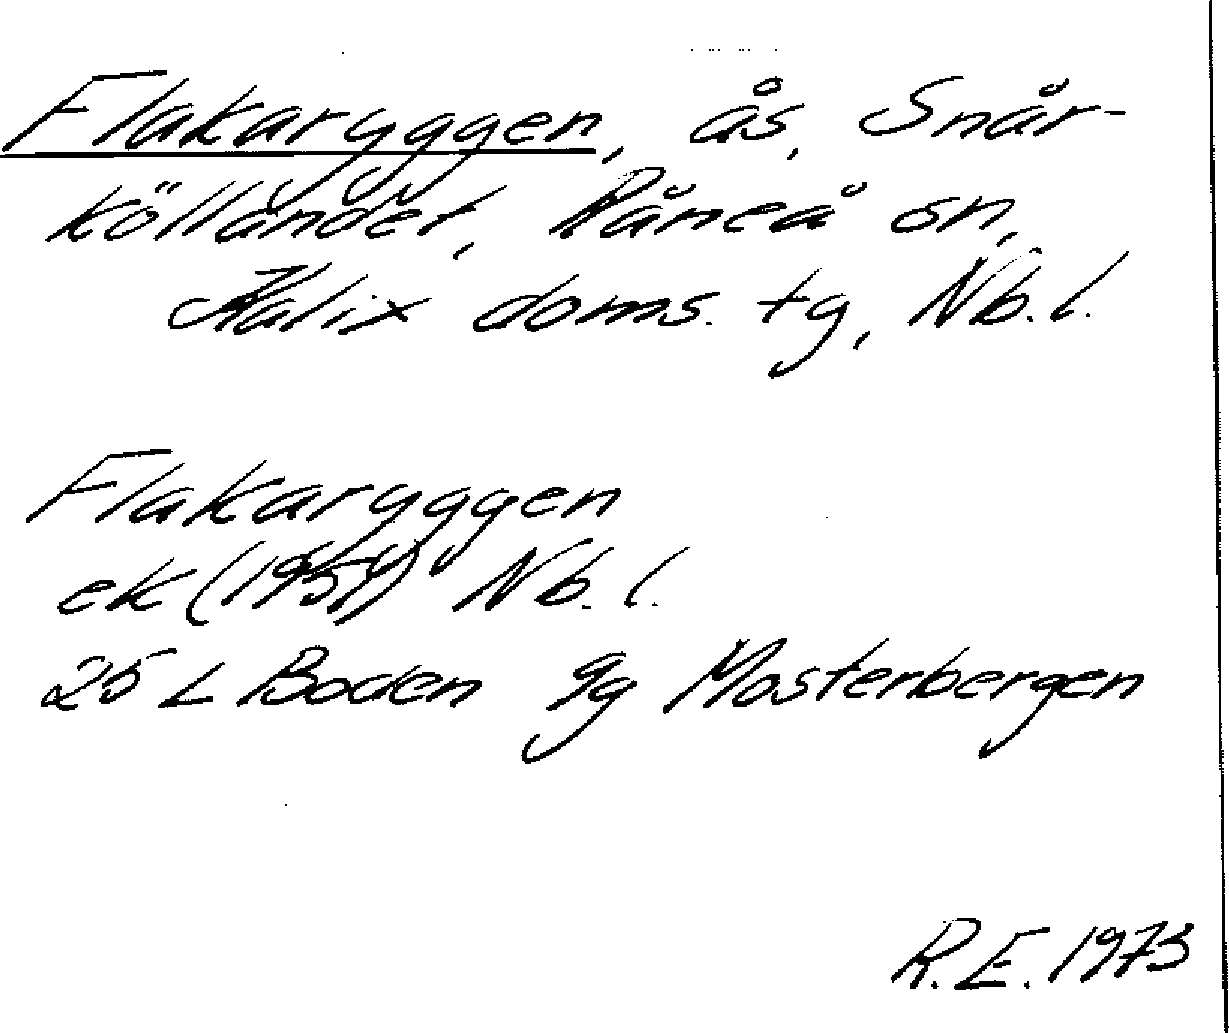 Flakaryggen, ås, Snår-
kölländet, Råneå sn,
Kalix doms. tg, Nb.l.
Flakaryggen
ek (1954) Nb.l.
25 L Boden 9g Mosterbergen
R.E. 1973